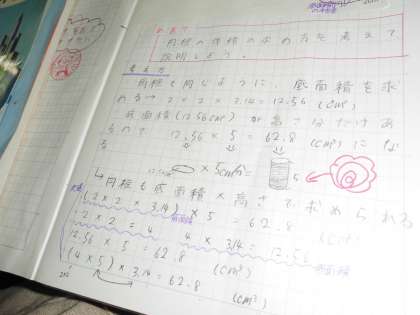 めあて
円柱の体積の求め方を考えて
説明しよう。
考え方
角柱と同じように、底面積を求
める→ 2 × 2 × 3.14 = 12.56 (cm²)
底面積(12.56cm²)が高さ
ので 12.56 × 5 = 62.8 (cm³) にな
る
× 5cm分 =
5
↳円柱も底面積×高さで求められる
(2 × 2 × 3.14) × 5 = 62.8 (cm³)
底面積
2 × 2 = 4 4 × 3.14 = 12.56
底面積
12.56 × 5 = 62.8 (cm³)
(4 × 5) × 3.14 = 62.8 (cm³)